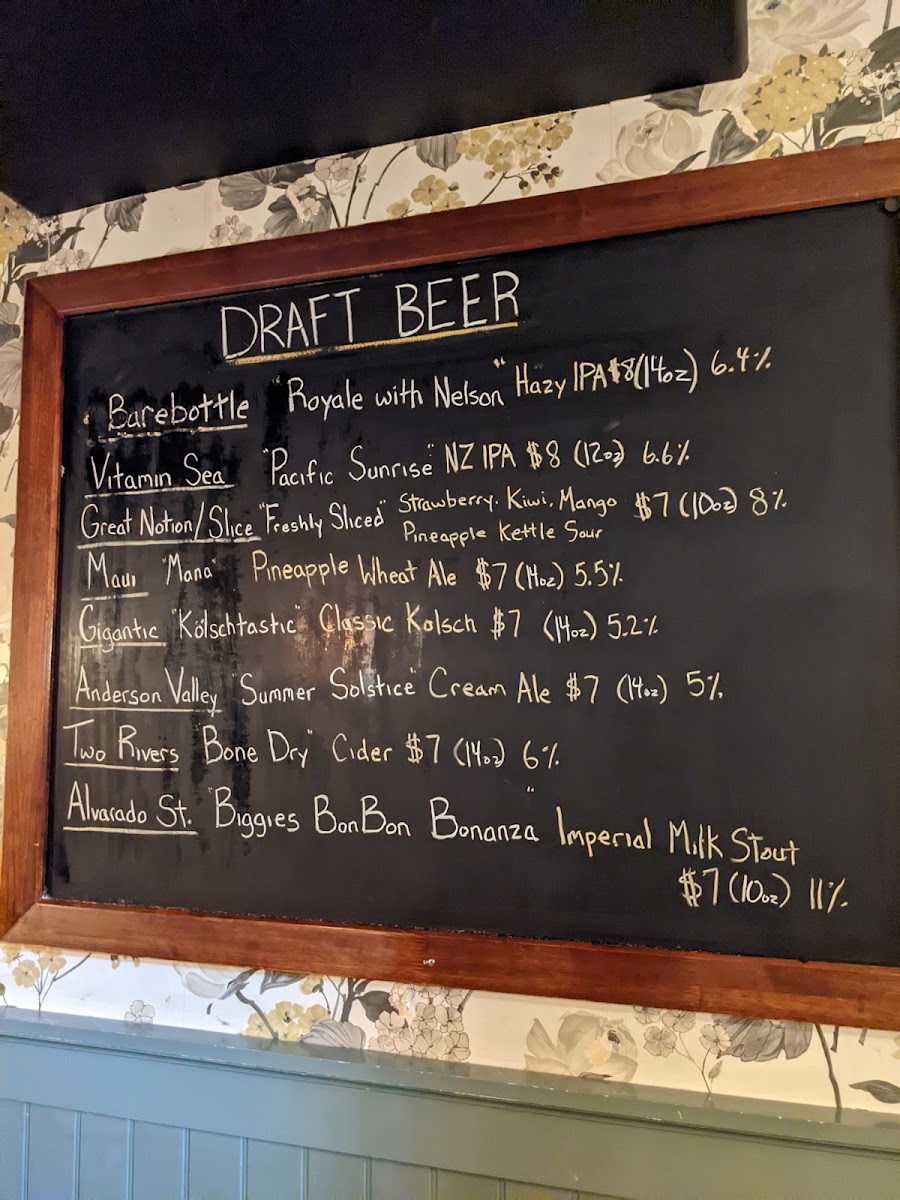 DRAFT BEER
Barebottle "Royale with Nelson" Hazy IPA $8 (14oz) 6.4%
Vitamin Sea "Pacific Sunrise" NZ IPA $8 (12oz) 6.6%
Great Notion/Slice "Freshly Sliced" Strawberry. Kiwi. Mango $7 (10oz) 8%
Pineapple Kettle Sour
Maui "Mana" Pineapple Wheat Ale $7 (14oz) 5.5%
Gigantic "Kölschtastic" Classic Kolsch $7 (14oz) 5.2%
Anderson Valley "Summer Solstice" Cream Ale $7 (14oz) 5%
Two Rivers "Bone Dry" Cider $7 (14oz) 6%
Alvarado St. "Biggies BonBon Bonanza" Imperial Milk Stout
$7 (10oz) 11%